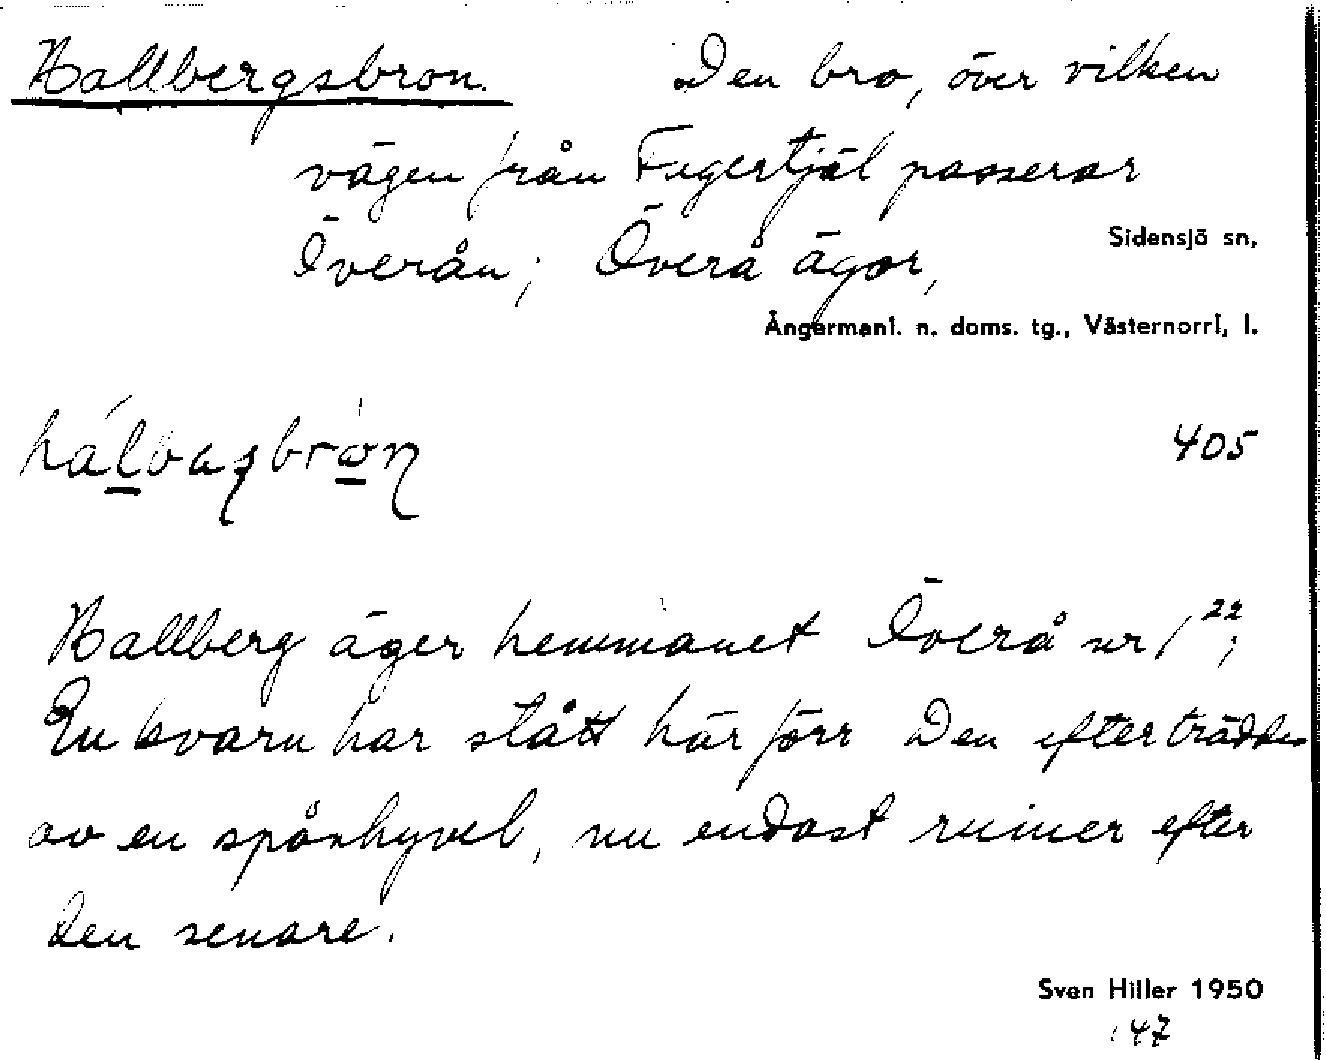 Hallbergsbron. Den bro, över vilken
vägen från Fugertjäl passerar
Överån; Överå ägor,
Sidensjö sn,
Ångermanl. n. doms. tg., Västernorrl, l.
405
Hallberg äger hemmanet Överå nr 1²²;
En kvarn har stått här förr Den efterträddes
av en spånhyvel, nu endast ruiner efter
den senare.
Sven Hiller 1950
47